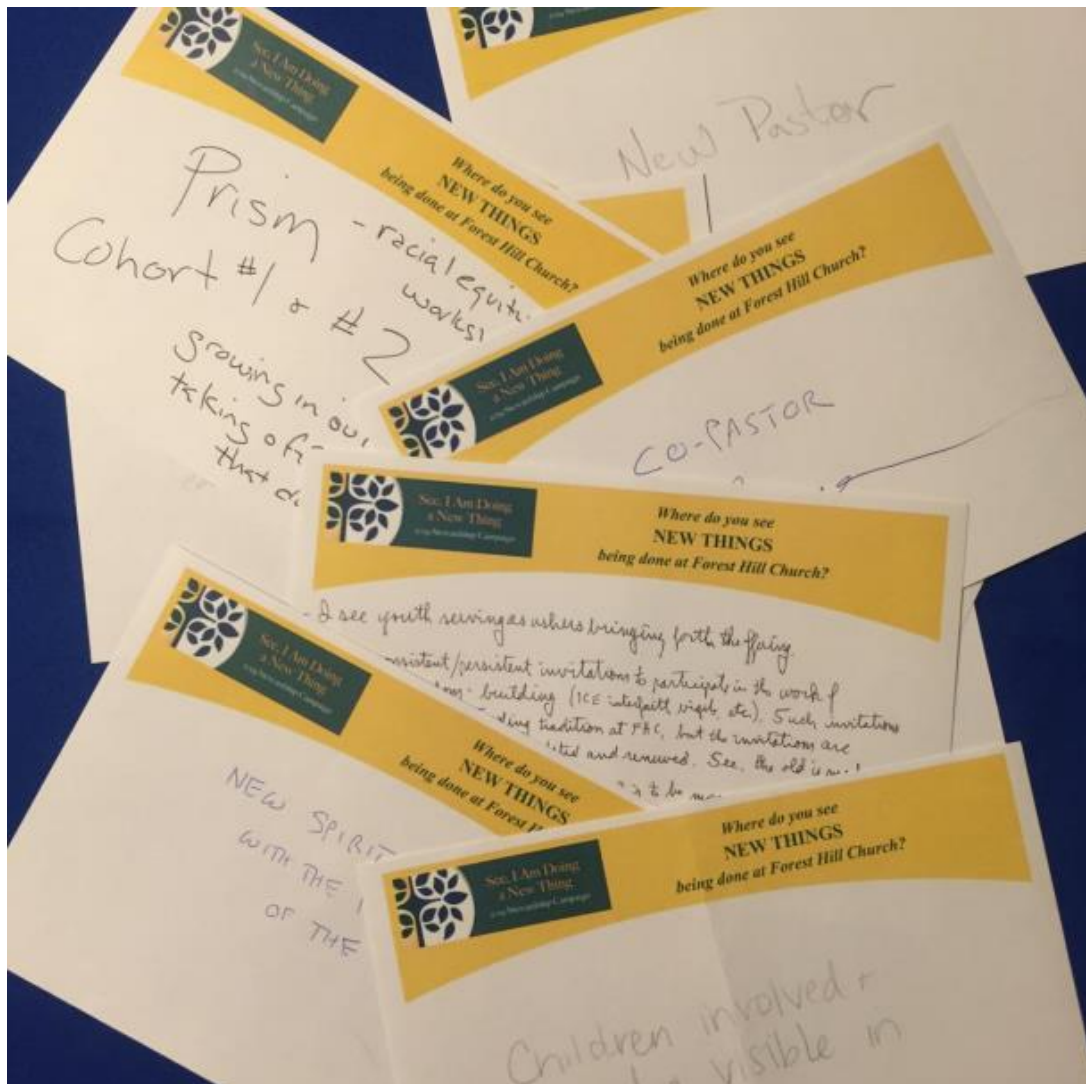 See, I Am Doing
a New Thing
2019 Stewardship Campaign
Where do you see
NEW THINGS
being done at Forest Hill Church?
Prism - racial equit
works
Cohort #1 & #2
growing in our
taking of
that
New Pastor
Where do you see
NEW THINGS
being done at Forest Hill Church?
See, I Am Doing
a New Thing
2019 Stewardship Campaign
CO-PASTOR
See, I Am Doing
a New Thing
2019 Stewardship Campaign
Where do you see
NEW THINGS
being done at Forest Hill Church?
- I see youth serving as ushers bringing forth the offering.
nsistent/persistent invitations to participate in the work of
building (ICE interfaith vigils, etc). Such invitations
ding tradition at FHC, but the invitations are
ted and renewed. See, the old is
is to be
See, I Am Doing
a New Thing
2019 Stewardship Campaign
Where do you see
NEW THINGS
being done at Forest H
NEW SPIRIT
WITH THE
OF THE
See, I Am Doing
a New Thing
2019 Stewardship Campaign
Where do you see
NEW THINGS
being done at Forest Hill Church?
Children involved +
visible in